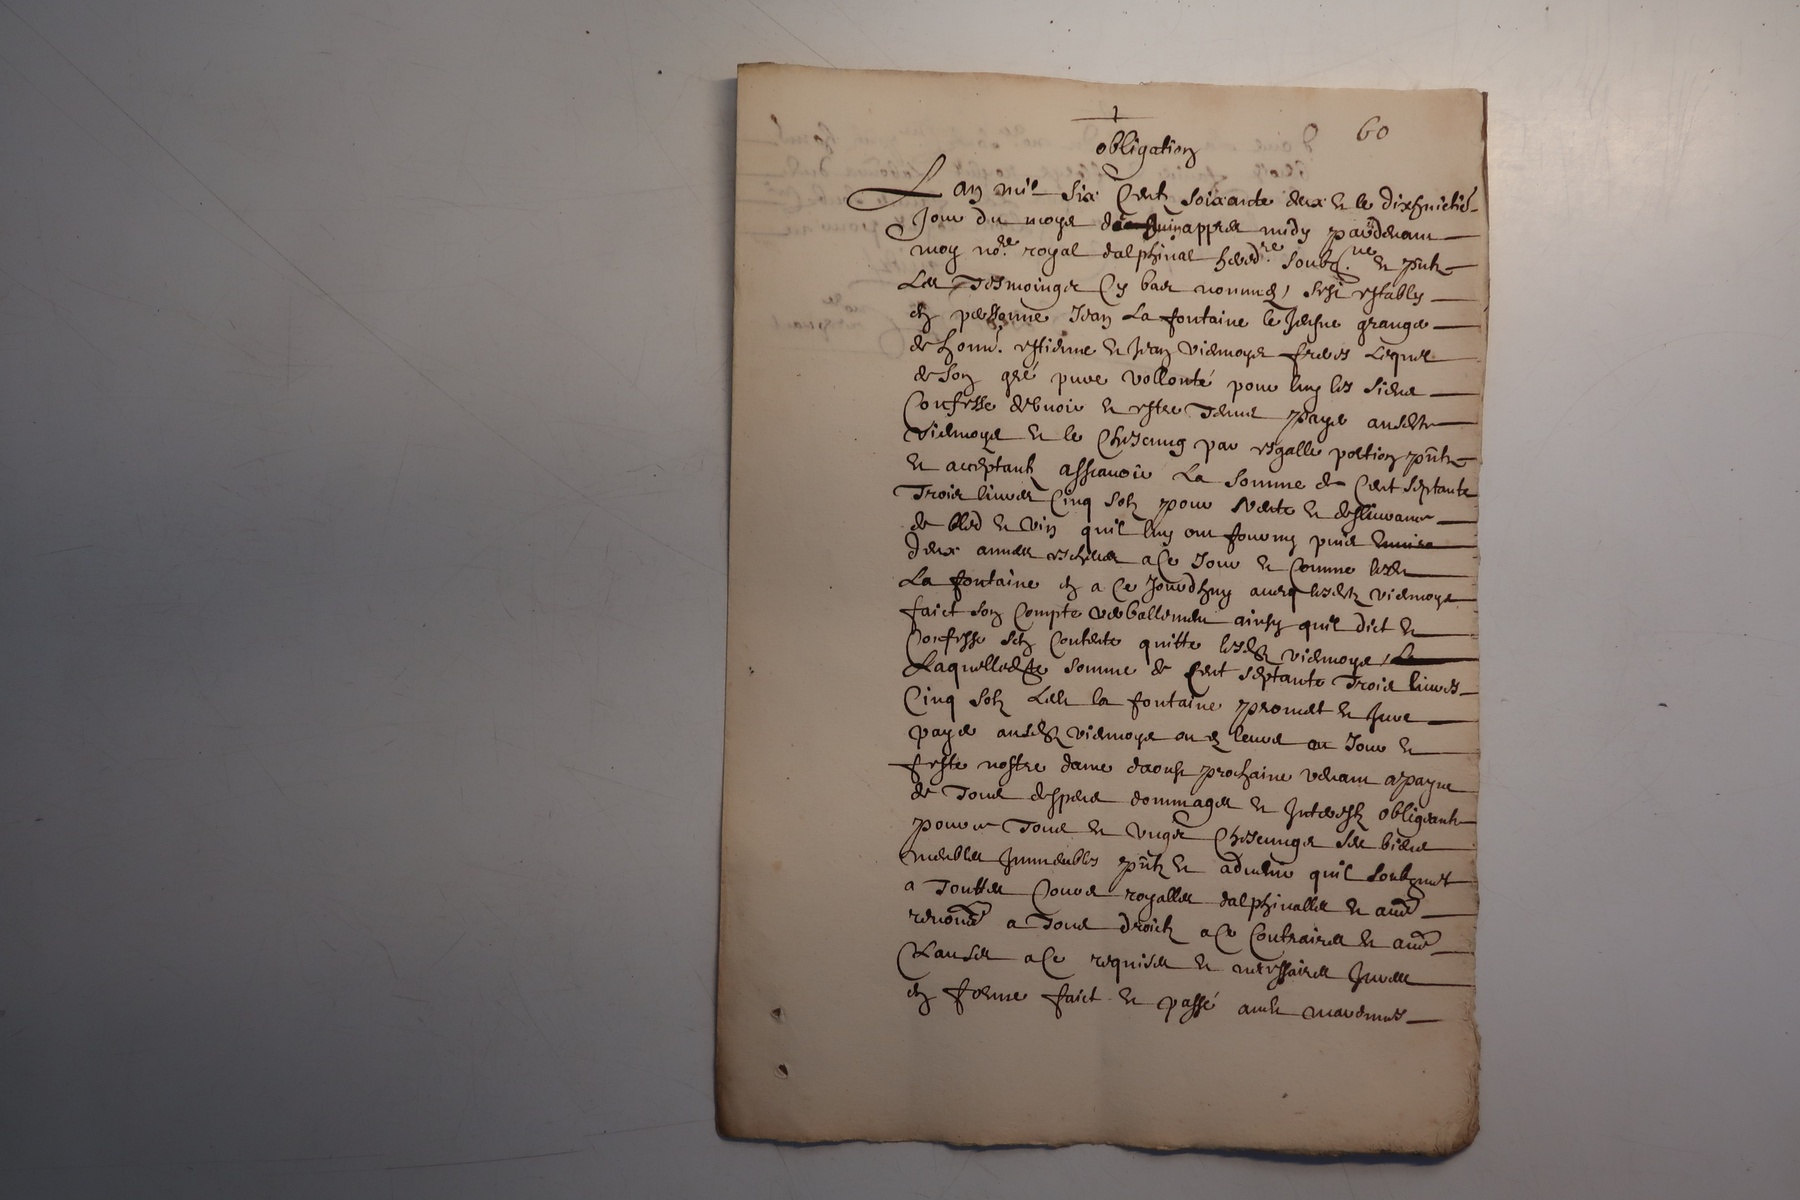 60
obligation
Lan mil six Cent soixante deux et le dixhuictie
Jour du moys de Juin appres midy pardevant
moy no.re royal dalphinal hered.re soubz.ne et pnts
Les Tesmoings Cy bas nommes, sest establys
en personne Jean La fontaine le Jeusne granger
de honn. estienne et Jean Viemoys freres Lequel
de son gré pure vollonté pour luy les siens
Confesse debvoir et estre Tenus payer ausdits
Viemoys et le Chescung par esgalle portion pnts
et acceptantz assavoir La somme de Cent septante
Trois livres Cinq solz pour vente et deslivrance
de bled et vin quil luy ont fourny puis
deux annes eschues a Ce Jour et Comme ledit
La fontaine en a Ce Jourdhuy avecq lesdits viemoys
faict son Compte verballement ainsy quil dict et
Confesse sen Contente quitte lesdits viemoys,
Laquelledite somme de Cent septante Trois livres
Cinq solz Ledit la fontaine promet et Jure
payer ausdits viemoys ou es leurs au Jour et
feste nostre dame daoust prochaine venant a payne
de Tous despens dommages et Interestz obligeantz
pour ce Tous et ungs Chescungs ses biens
meubles Immeubles pnts et advenir quil soubzmet
a Touttes Cours royalles dalphinalles et aues
renonce a Tous droictz a Ce Contraires et aues
Clauses a Ce requises et necessaires Jures
en forme faict et passé audit